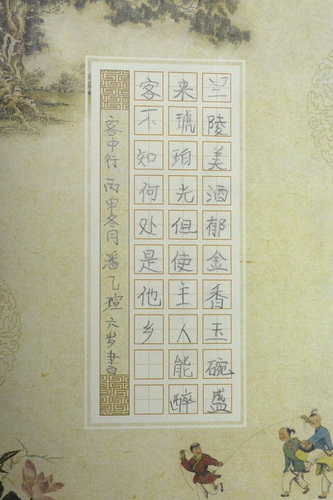 兰陵美酒郁金香玉碗盛
来琥珀光但使主人能醉
客不知何处是他乡
客中行 丙申冬月 潘乙瑄 六岁书